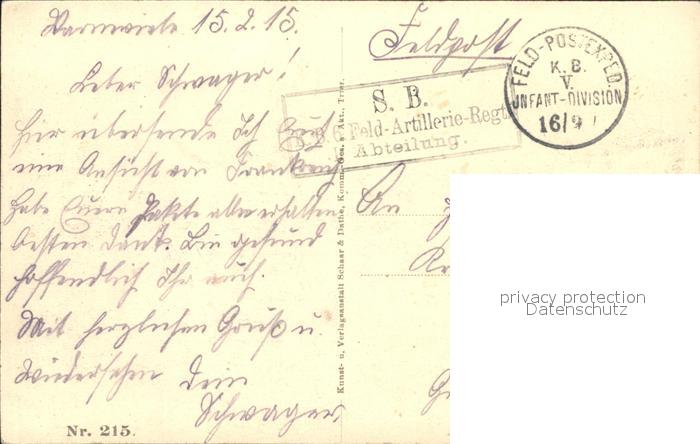 15. 2. 15.
Feldpost
Lieber Schwager!
hier übersende Ich Euch
eine Ansicht von Frankreich
habe Euere Pakte alle erhalten
besten Dank. Bin gesund
hoffendlich Ihr auch.
Mit herzlichen Gruß u.
Wiedersehen Dein
Schwager
Nr. 215.
FELD-POSTEXPED.
K. B.
V.
INFANT-DIVISION
16/2
S. B.
6. Feld-Artillerie-Regt.
Abteilung.
Kunst- u. Verlagsanstalt Schaar & Dathe, Komm.-Ges. a. Akt., Trier.
An
privacy protection
Datenschutz